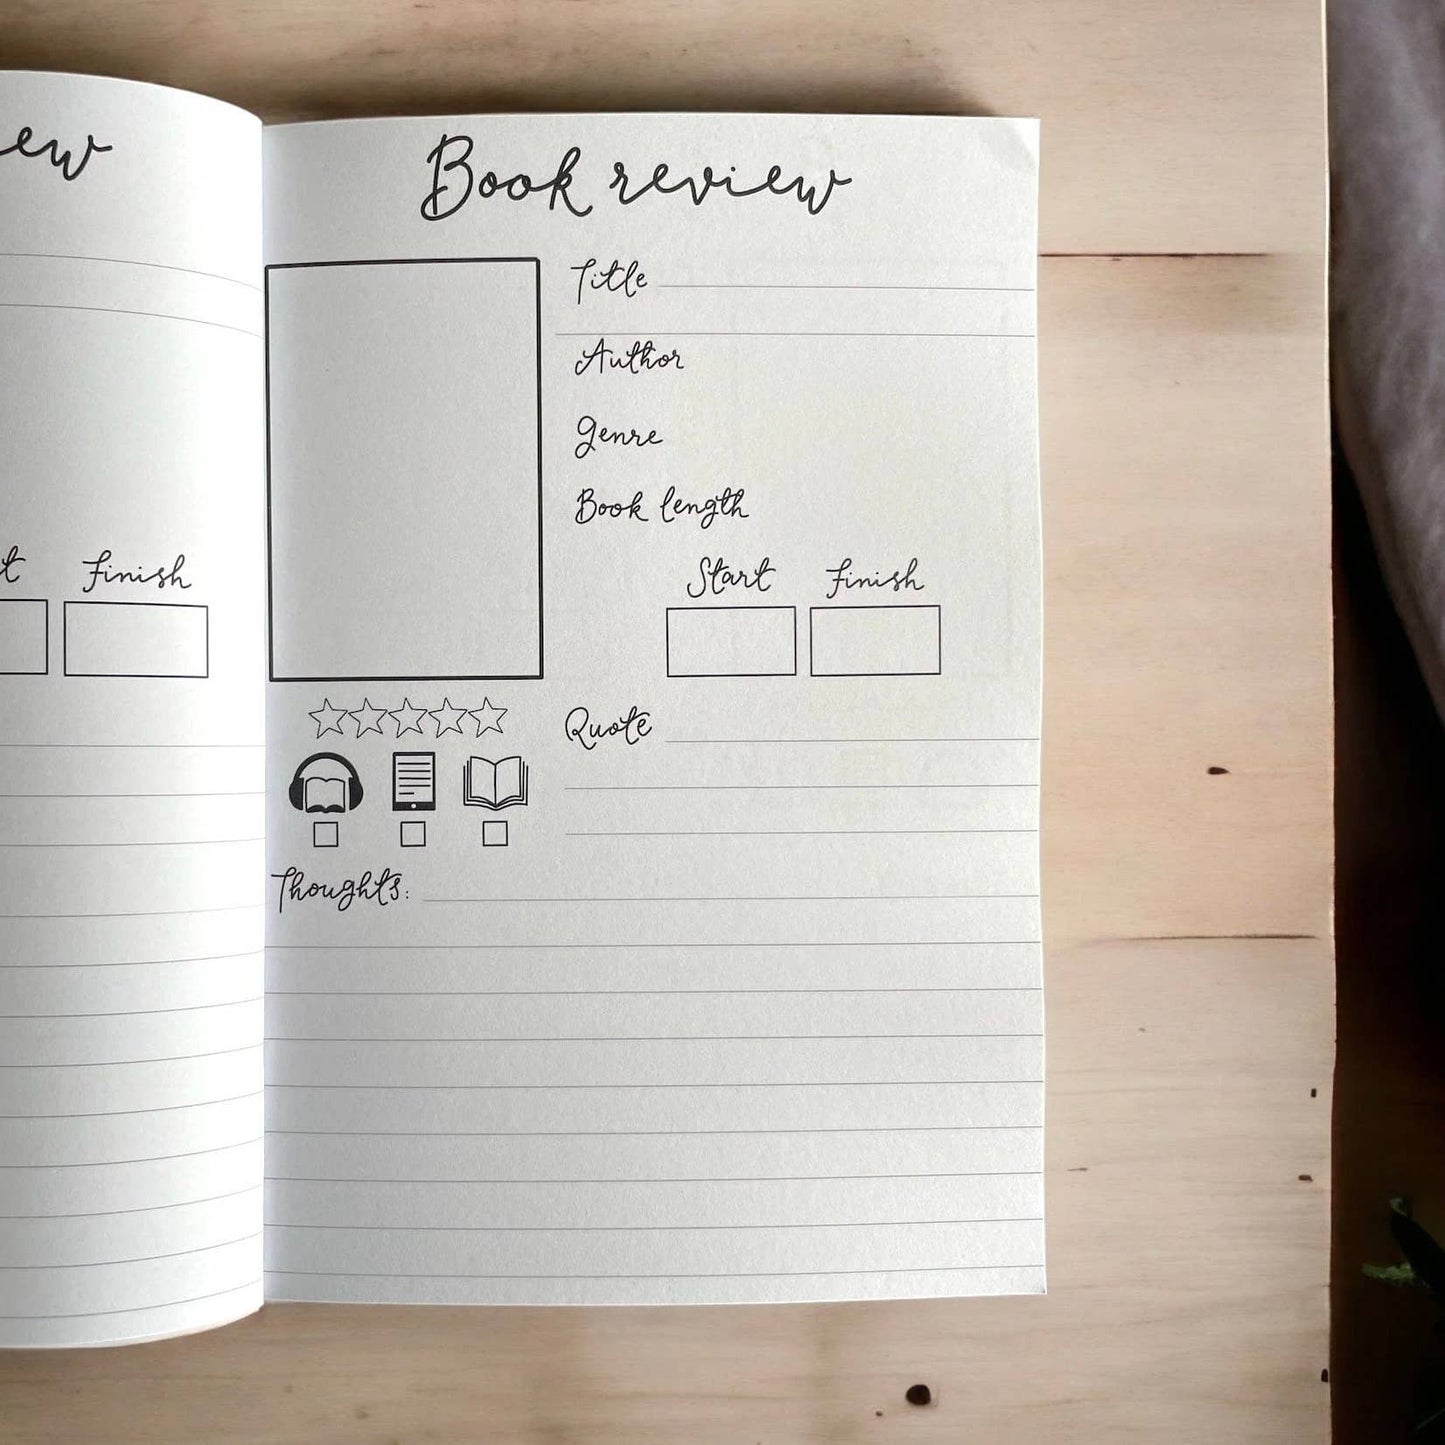 ew
t Finish
Book review
Title
Author
Genre
Book length
Start Finish
Quote
Thoughts: